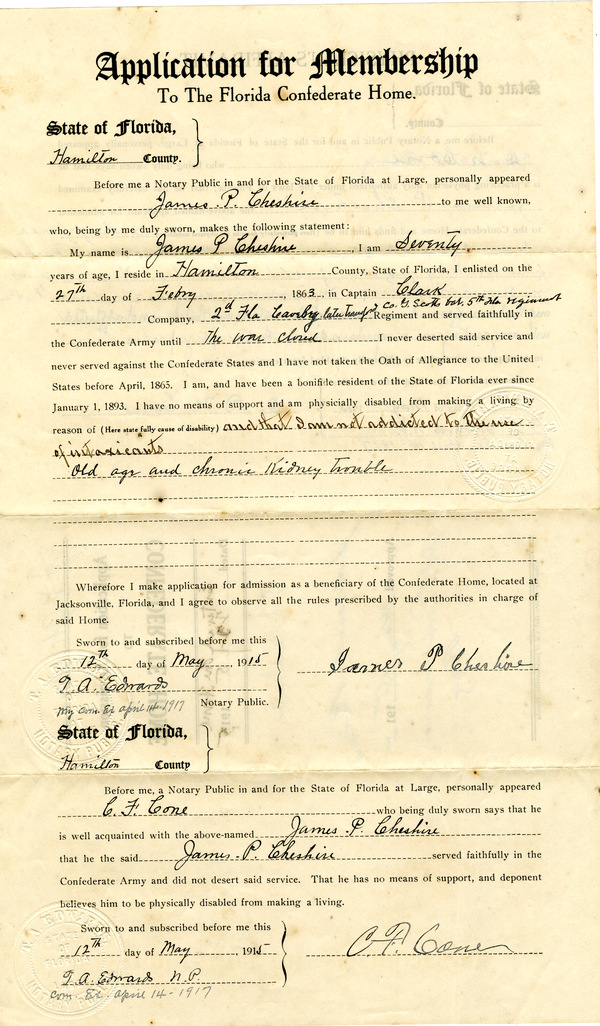 Application for Membership
To The Florida Confederate Home.
State of Florida,
Hamilton County.
Before me a Notary Public in and for the State of Florida at Large, personally appeared
James. P. Cheshire to me well known,
who, being by me duly sworn, makes the following statement:
My name is James P Cheshire, I am Seventy
years of age, I reside in Hamilton County, State of Florida, I enlisted on the
27th day of Febry, 1863, in Captain Clark
Company, 2d Fla Cavalry later transfd Co. G. Scotts bat. 5th Fla regiment Regiment and served faithfully in
the Confederate Army until the war closed I never deserted said service and
never served against the Confederate States and I have not taken the Oath of Allegiance to the United
States before April, 1865. I am, and have been a bonifide resident of the State of Florida ever since
January 1, 1893. I have no means of support and am physicially disabled from making a living by
reason of (Here state fully cause of disability) and that I am not addicted to the use
of intoxicants
Old age and chronic Kidney trouble
Wherefore I make application for admission as a beneficiary of the Confederate Home, located at
Jacksonville, Florida, and I agree to observe all the rules prescribed by the authorities in charge of
said Home.
Sworn to and subscribed before me this
12th day of May, 1915
James P Cheshire
T. A. Edwards
Notary Public.
My Com. Ex april 14-1917
State of Florida,
Hamilton County
Before me, a Notary Public in and for the State of Florida at Large, personally appeared
C. F. Cone who being duly sworn says that he
is well acquainted with the above-named James P. Cheshire
that he the said James. P. Cheshire served faithfully in the
Confederate Army and did not desert said service. That he has no means of support, and deponent
believes him to be physically disabled from making a living.
Sworn to and subscribed before me this
12th day of May, 1915
C. F. Cone
T. A. Edwards N.P.
Com. Ex. april 14-1917